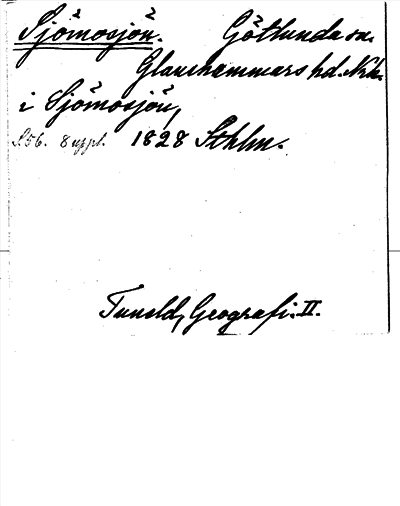 Sjömosjön. Götlunda sn.
Glanshammars hd. Nrk.
i Sjömosjön,
S.56. 8 uppl. 1828 Sthlm.
Tuneld, Geografi. II.